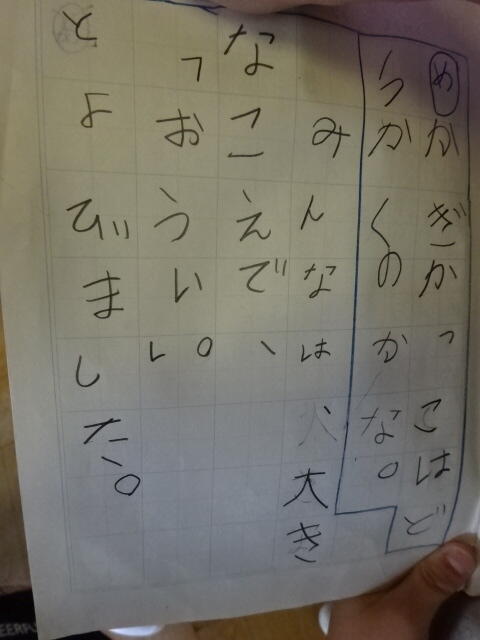 めかぎかっこはど
うかくのかな。
みんなは大き
なこえで、
「おうい。」
とよびました。